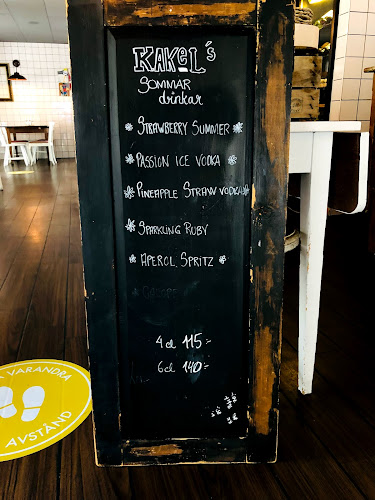 KAKEL's
SOMMAR
drinkar
* STRAWBERRY SUMMER *
* PASSION ICE VODKA *
* PINEAPPLE STRAW VODKA *
* SPARKLING RUBY
* APEROL SPRITZ *
4 cl 115:-
6 cl 140:-
VARANDRA
AVSTÅND